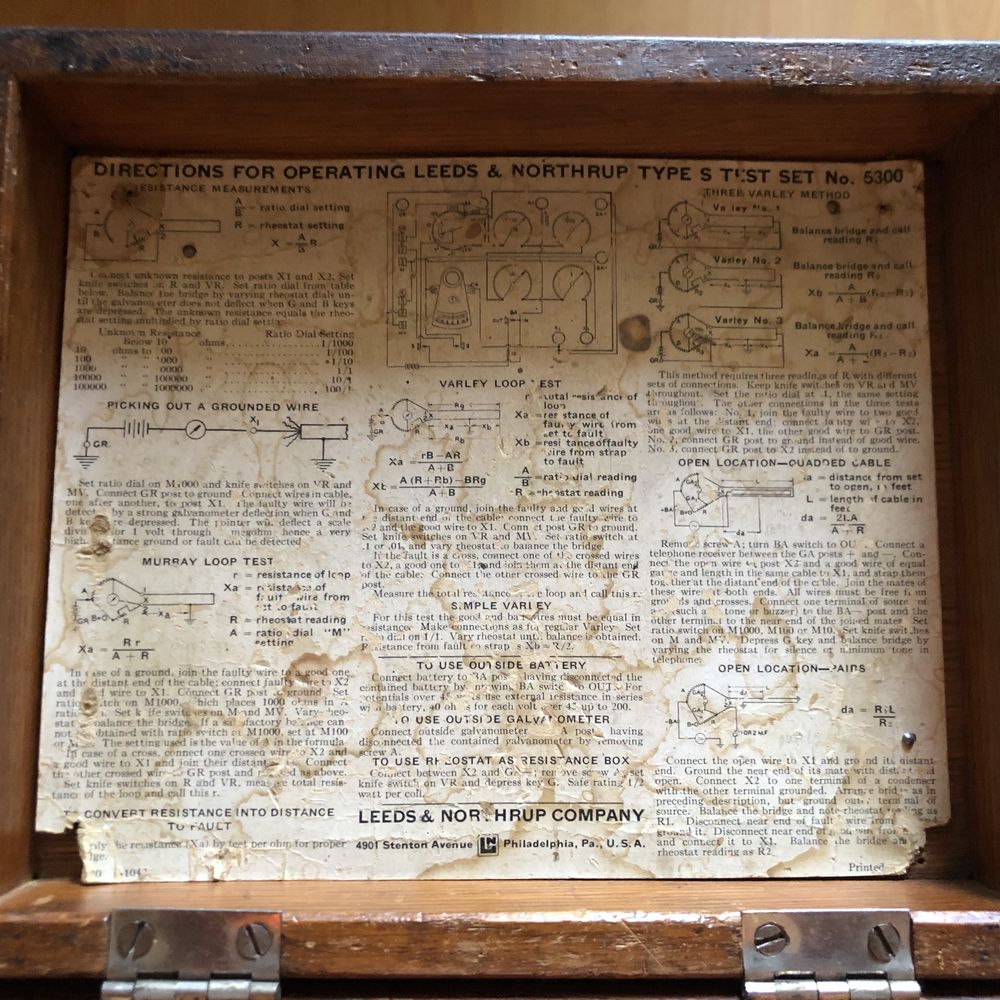 DIRECTIONS FOR OPERATING LEEDS & NORTHRUP TYPE S T ST SET No. 5300
ESISTANCE MEASUREMENTS
A/B = ratio dial setting
R = rheostat setting
X = R
Connect unknown resistance to posts X1 and X2. Set
knife switches on R and VR. Set ratio dial from table
below. Balance the bridge by varying rheostat dials un-
til the galvanometer does not deflect when G and B keys
are depressed. The unknown resistance equals the rheo-
stat setting multiplied by ratio dial setting.
Unknown Resistance Ratio Dial Setting
Below 10 ohms 1/1000
10 ohms to 00 1/100
100 " " 000 1/10
1000 " " 1/1
10000 " " 100000 10/1
100000 " " 1000000 100/1
PICKING OUT A GROUNDED WIRE
X1
GR.
Set ratio dial on M1000 and knife switches on VR and
MV. Connect GR post to ground. Connect wires in cable,
one after another, to post X1. The faulty wire will be
detect by a strong galvanometer deflection when G and
B k re depressed. The pointer will deflect a scale
divi for 1 volt through megohm hence a very
high ance ground or fault can be detected
MURRAY LOOP TEST
r = resistance of loop
Xa = resistance of
fault wire from
set to fault
R = rheostat reading
A = ratio dial "M"
setting
Xa = R r / A + R
In case of a ground, join the faulty wire to a good one
at the distant end of the cable; connect faulty wire to X2
and good wire to X1. Connect GR post to ground. Set
ratio switch on M1000, which places 1000 ohms in A
ratio . Set knife switches on M and MV. Vary rheo-
stat balance the bridge. If a satisfactory balance can-
not obtained with ratio switch at M1000, set at M100
or M . The setting used is the value of A in the formula
In case of a cross, connect one crossed wire to X2 and
a good wire to X1 and join their distant . Connect
the other crossed wire GR post and ed as above.
Set knife switches on R and VR, measure total resis-
tance of the loop and call this r.
CONVERT RESISTANCE INTO DISTANCE
TO FAULT
ply the resistance (Xa) by feet per ohm for proper
VARLEY LOOP EST
r total resistance of
loop
Xa = resistance of
faulty wire from
set to fault
Xb = resistance of faulty
wire from strap
to fault
A/B = ratio dial reading
R = rheostat reading
Xa = rB–AR / A+B
Xb = A (R + Rb) – BRg / A+B
In case of a ground, join the faulty and good wires at
distant end of the cable connect the faulty wire to
2 and the good wire to X1. Connect post GR to ground.
Set knife switches on VR and MV. Set ratio switch at
.1 or .01, and vary rheostat to balance the bridge.
If the fault is a cross, connect one of the crossed wires
to X2, a good one to and join them at the distant end
of the cable. Connect the other crossed wire to GR
post.
Measure the total resistance of the loop and call this r.
SIMPLE VARLEY
For this test the good and bad wires must be equal in
resistance. Make connections as for regular Varley. Set
ratio dial on 1/1. Vary rheostat until balance is obtained.
Resistance from fault to strap is Xb = R/2.
TO USE OUTSIDE BATTERY
Connect battery to BA posts having connected the
contained battery by nwin, BA switch to OUT. For
potentials over use external resistance in series
with battery, 40 ohm for each volt over 45 up to 200.
TO USE OUTSIDE GALVANOMETER
Connect outside galvanometer A post having
disconnected the contained galvanometer by removing
screw A.
TO USE RHEOSTAT AS RESISTANCE BOX
Connect between X2 and GA ; remove screw A, set
knife switch on VR and depress key G. Safe rating 1/2
watt per coil.
LEEDS & NORTHRUP COMPANY
4901 Stenton Avenue LN Philadelphia, Pa., U.S.A.
THREE VARLEY METHOD
Varley No. 1
Balance bridge and call
reading R1
Varley No. 2
Balance bridge and call
reading R2
Xb = A / A+B (R3–R2)
Varley No. 3
Balance bridge and call
Xa = A (R3–R2)
This method requires three readings of R with different
sets of connections. Keep knife switches on VR and MV
throughout. Set the ratio dial at .1, the same setting
throughout. The other connections in the three tests
are as follows: No. 1, join the faulty wire to two good
wires at the distant end; connect faulty wire to X2,
one good wire to X1, the other good wire to GR post.
No. 2, connect GR post to ground instead of good wire.
No. 3, connect GR post to X2 instead of to ground.
OPEN LOCATION—QUADDED CABLE
da = distance from set
to open, in feet
L = length of cable in
feet
da = 2LA / A+R
Remove screw A; turn BA switch to OU . Connect a
telephone receiver between the GA posts + and —. Con-
nect the open wire to post X2 and a good wire of equal
gauge and length in the same cable to X1, and strap them
together at the distant end of the cable. Join the mates of
these wires at both ends. All wires must be free from
grounds and crosses. Connect one terminal of source of
(such a tone or buzzer) to the BA— post and the
other terminal to the near end of the joined mates. Set
ratio switch on M1000, M100 or M10. Set knife switches
on M and MV. Depress G key and balance bridge by
varying the rheostat for silence or minimum tone in
telephone.
OPEN LOCATION—PAIRS
da = R1L / R2
1 OR 2 M.F.
Connect the open wire to X1 and ground its distant
end. Ground the near end of its mate with distant
open. Connect X2 to one terminal of a condenser
with the other terminal grounded. Arrange bridge as in
preceding description, but ground outer terminal of
source. Balance the bridge and note rheostat reading as
R1. Disconnect near end of faulty wire from
ground it. Disconnect near end of wire from
and connect it to X1. Balance the bridge and
rheostat reading as R2.
Printed